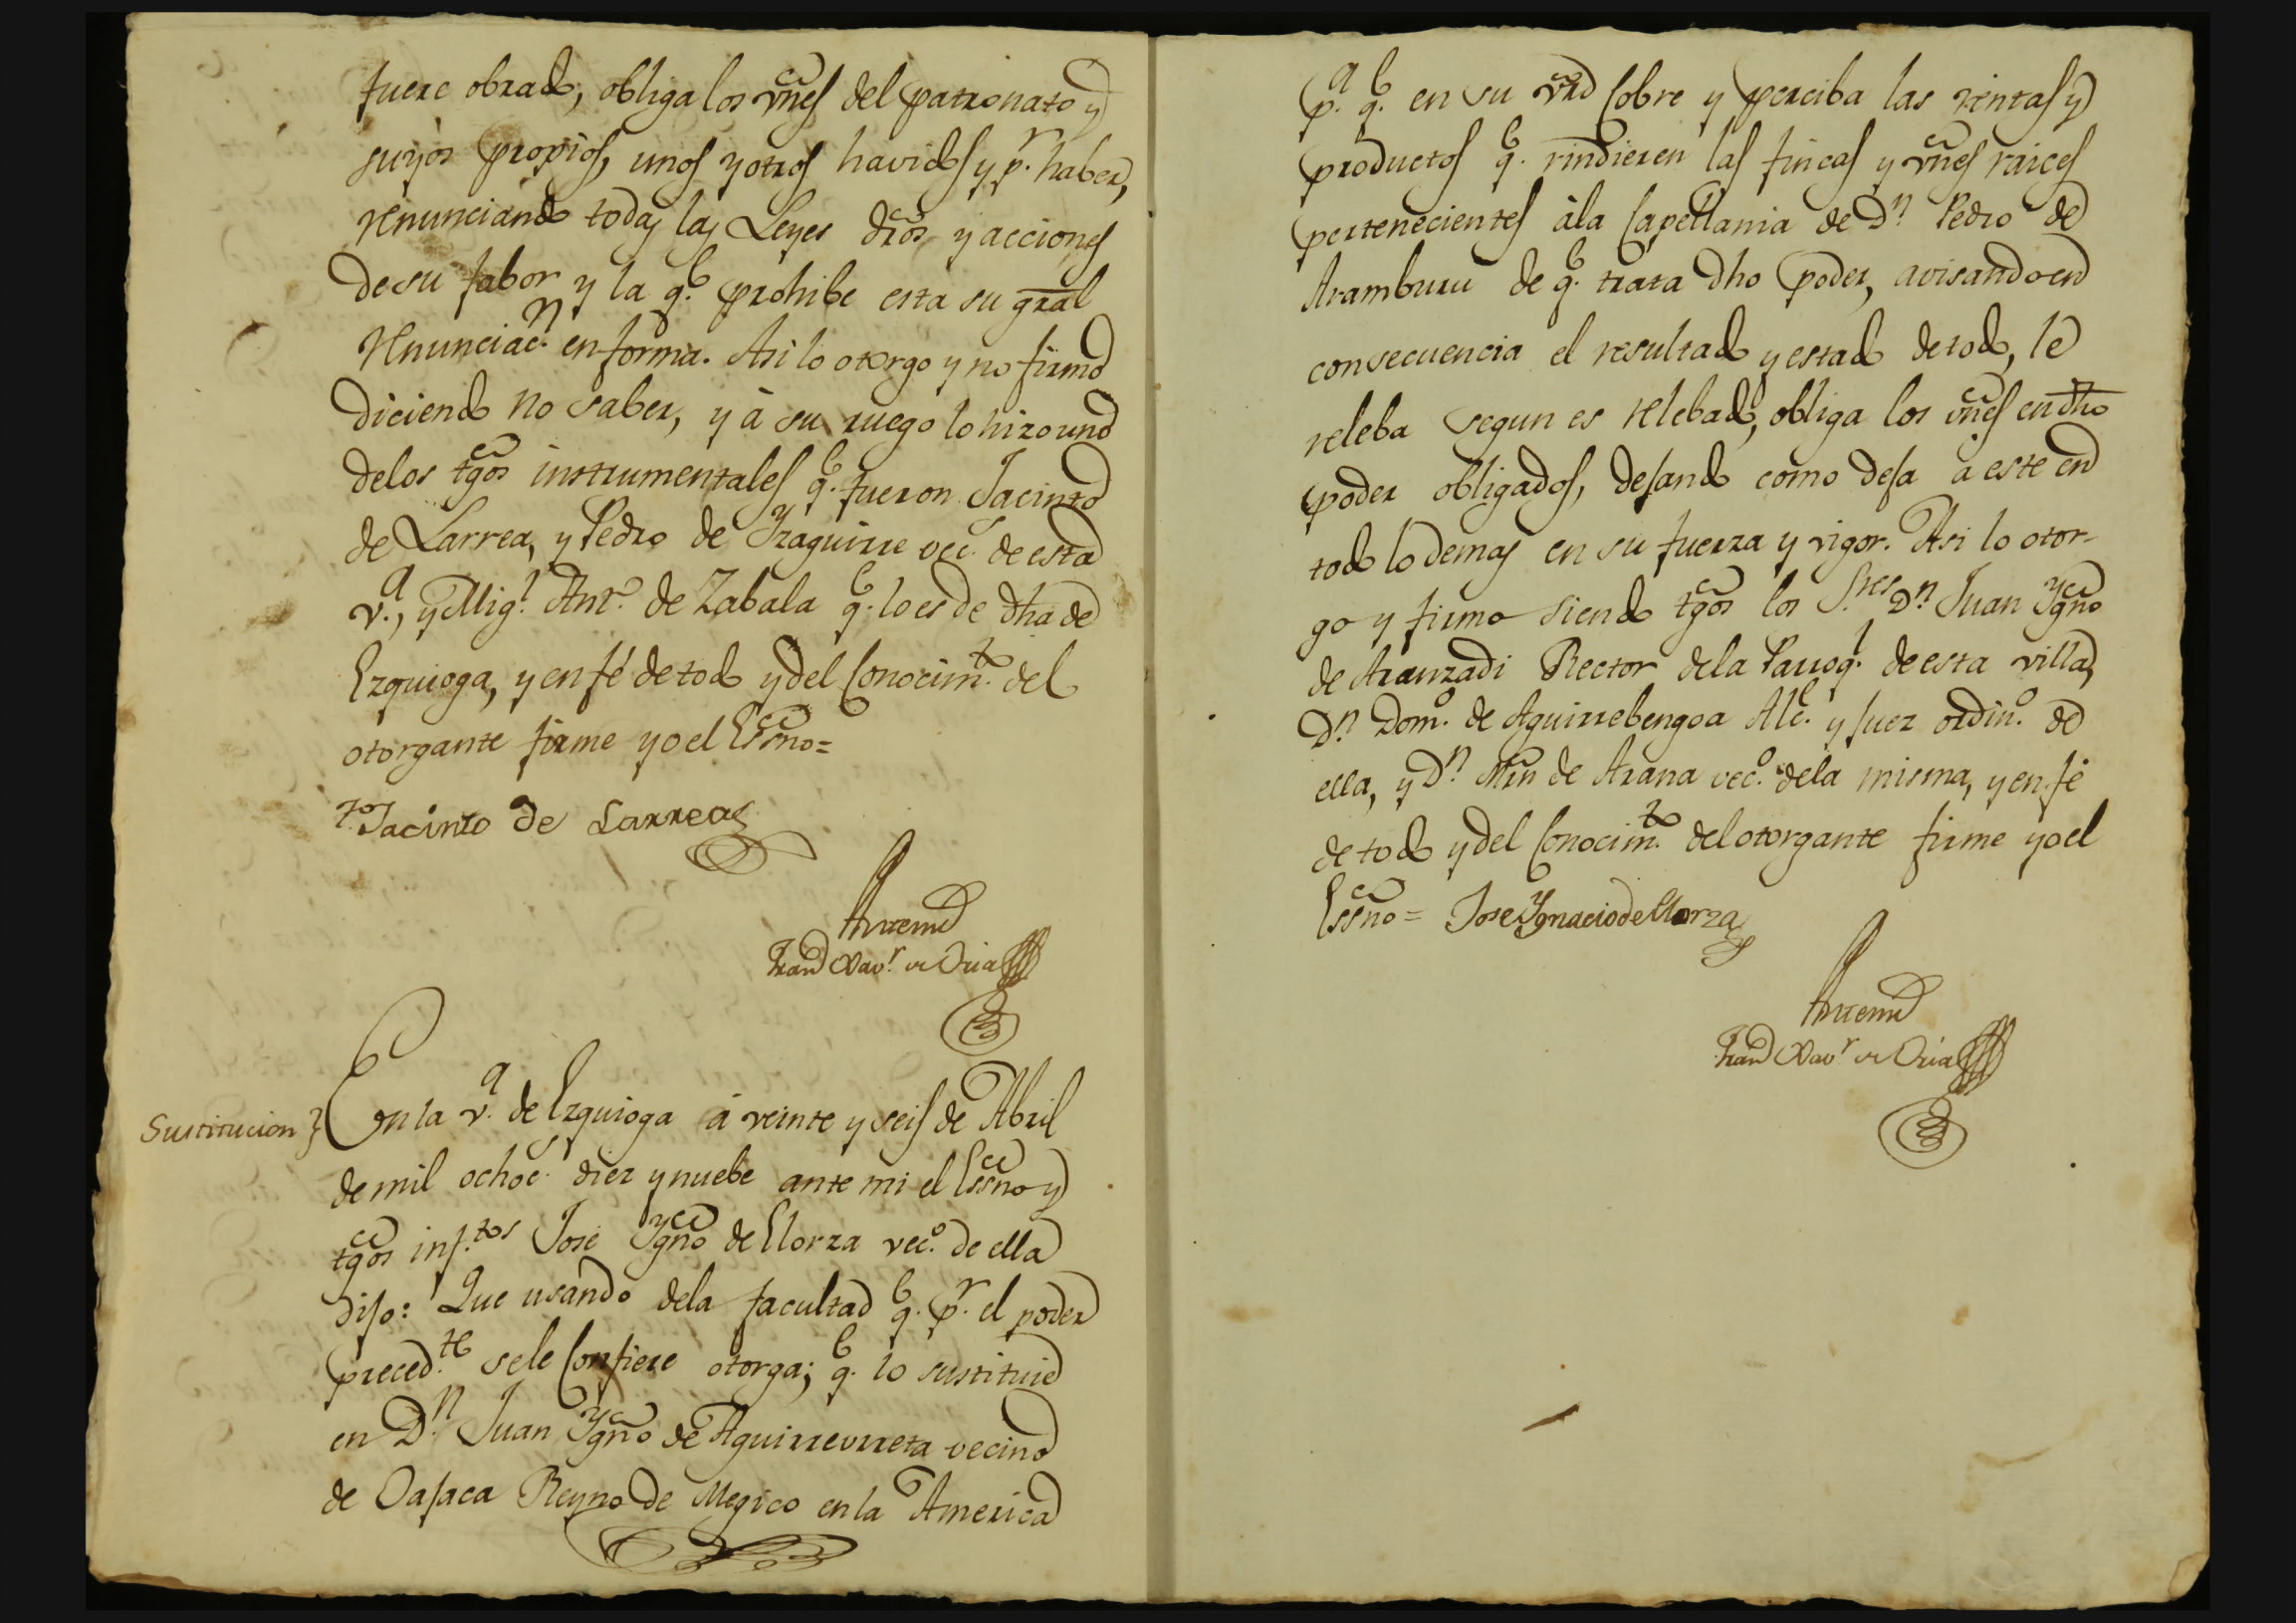 fuere obrado, obliga los vnes del patronato y
suyos propios, unos y otros havidos y p.r haber,
renunciando todas las Leyes dros y acciones
de su fabor y la q.e prohibe esta su gral
renunciac.n en forma. Asi lo otorgo y no firmo
diciendo no saber, y à su ruego lo hizo uno
de los tgos instrumentales q.e fueron Jacinto
de Larrea, y Pedro de Yzaguirre vec.s de esta
v.a, y Mig.l Ant.o de Zabala q.e lo es de dha de
Ezquioga, y en fé de todo y del Conocim.to del
otorgante firme yo el Essno=
T.o Jacinto de Larrea
Antemi
Fran.co Xav.r de Oria
Sustitucion
En la v.a de Ezquioga à veinte y seis de Abril
de mil ochoc.s diez y nuebe ante mi el Essno y
tgos inf.tos José Ygno de Elorza vec.o de ella
Dijo: Que usando de la facultad q.e p.r el poder
preced.te se le Confiere otorga; q.e lo sustituie
en D.n Juan Ygno de Aguirreurreta vecino
de Oajaca Reyno de Megico en la America
p.a q.e en su vrd Cobre y perciba las rentas y
productos q.e rindieren las fincas y vnes raices
pertenecientes à la Capellania de D.n Pedro de
Aramburu de q.e trata dho poder, avisando en
consecuencia el resultado y estado de todo, le
releba segun es relebado, obliga los vnes en dho
poder obligados, dejando como deja à este en
todo lo demas en su fuerza y vigor. Asi lo otor-
go y firmo siendo tgos los S.res D.n Juan Ygno
de Aranzadi Rector de la Parroq.l de esta villa,
D.n Dom.o de Aguirrebengoa Alc.e y Juez ordin.o de
ella, y D.n Mrn de Arana vec.o de la misma, y en fé
de todo y del Conocim.to del otorgante firme yo el
Essno= Jose Ygnacio de Elorza
Antemi
Fran.co Xav.r de Oria